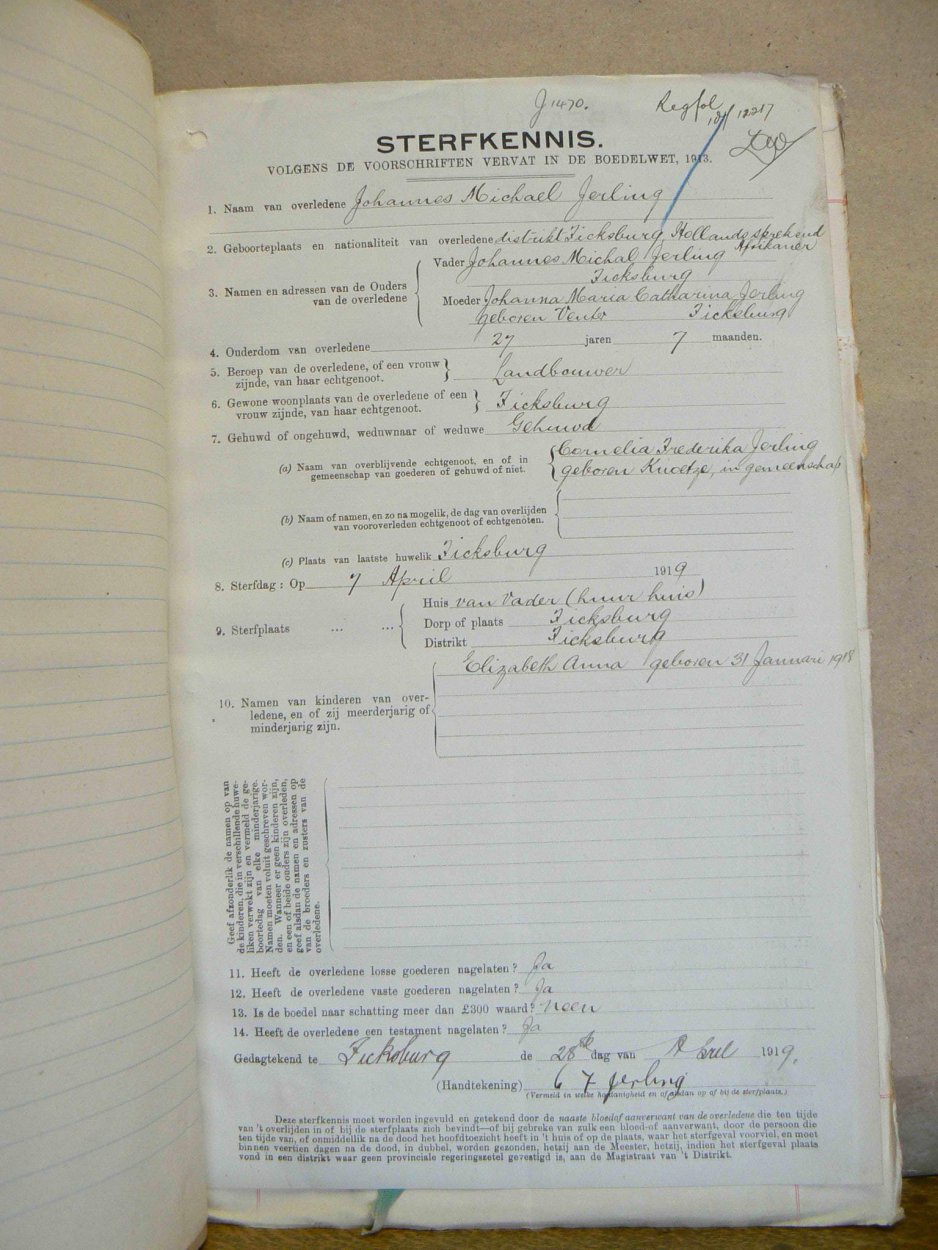 J 1470.
Regfol
12217
STERFKENNIS.
VOLGENS DE VOORSCHRIFTEN VERVAT IN DE BOEDELWET, 1913.
1. Naam van overledene Johannes Michael Jerling
2. Geboorteplaats en nationaliteit van overledene distrikt Ficksburg, Hollands sprekend
Afrikaner
3. Namen en adressen van de Ouders
van de overledene
Vader Johannes Michal Jerling
Ficksburg
Moeder Johanna Maria Catharina Jerling
geboren Venter Ficksburg
4. Ouderdom van overledene 27 jaren 7 maanden.
5. Beroep van de overledene, of een vrouw
zijnde, van haar echtgenoot.
Landbouwer
6. Gewone woonplaats van de overledene of een
vrouw zijnde, van haar echtgenoot.
Ficksburg
7. Gehuwd of ongehuwd, weduwnaar of weduwe Gehuwd
(a) Naam van overblijvende echtgenoot, en of in
gemeenschap van goederen of gehuwd of niet.
Cornelia Frederika Jerling
geboren Knoetze, in gemeenschap
(b) Naam of namen, en zo na mogelik, de dag van overlijden
van vooroverleden echtgenoot of echtgenoten.
(c) Plaats van laatste huwelik Ficksburg
8. Sterfdag: Op 7 April 1919
9. Sterfplaats ... ...
Huis van Vader (huur huis)
Dorp of plaats Ficksburg
Distrikt Ficksburg
10. Namen van kinderen van over-
ledene, en of zij meerderjarig of
minderjarig zijn.
Elizabeth Anna geboren 31 Januari 1918
Geef afzonderlik de namen op van
de kinderen, die in verschillende huwe-
liken verwekt zijn en vermeld de ge-
boortedag van elke minderjarige.
Namen moeten voluit geschreven wor-
den. Wanneer er geen kinderen zijn,
en een of beide ouders zijn overleden,
geef alsdan de namen en adressen op
van de broeders en zusters van de
overledene.
11. Heeft de overledene losse goederen nagelaten? Ja
12. Heeft de overledene vaste goederen nagelaten? Ja
13. Is de boedel naar schatting meer dan £300 waard? neen
14. Heeft de overledene een testament nagelaten? Ja
Gedagtekend te Ficksburg de 28ste dag van April 1919.
(Handtekening) C F Jerling
(Vermeld in welke hoedanigheid en of aldan op of bij de sterfplaats.)
Deze sterfkennis moet worden ingevuld en getekend door de naaste bloedaf aanverwant van de overledene die ten tijde
van 't overlijden in of bij de sterfplaats zich bevindt—of bij gebreke van zulk een bloed-of aanverwant, door de persoon die
ten tijde van, of onmiddellik na de dood het hoofdtoezicht heeft in 't huis of op de plaats, waar het sterfgeval voorviel, en moet
binnen veertien dagen na de dood, in dubbel, worden gezonden, hetzij aan de Meester, hetzij, indien het sterfgeval plaats
vond in een distrikt waar geen provinciale regeringszetel gevestigd is, aan de Magistraat van 't Distrikt.